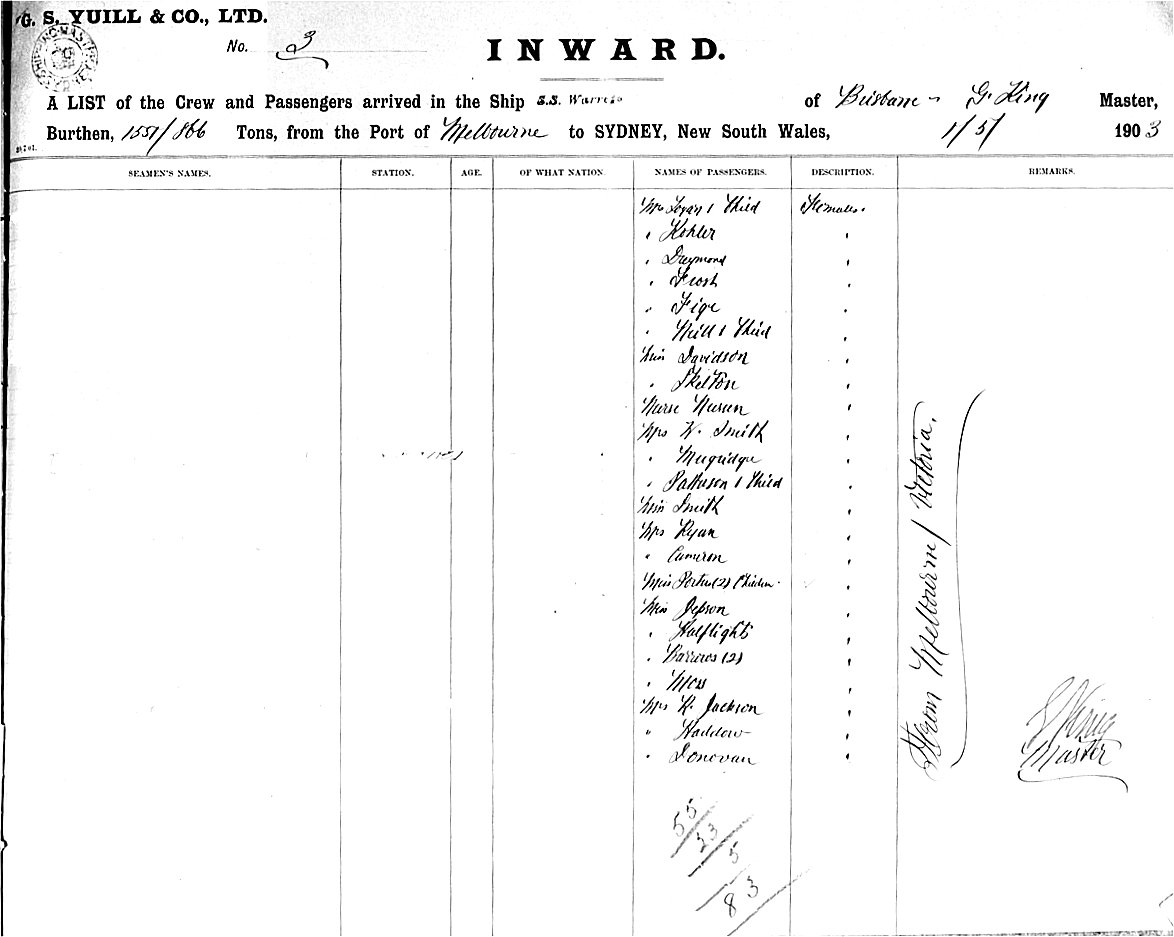 G. S. YUILL & CO., LTD.
No. 3
INWARD.
SHIPPING MASTER SYDNEY
A LIST of the Crew and Passengers arrived in the Ship S.S. of Brisbane G. King Master,
Burthen, 1551/866 Tons, from the Port of Melbourne to SYDNEY, New South Wales, 1/5/ 1903
SEAMEN'S NAMES. STATION. AGE. OF WHAT NATION. NAMES OF PASSENGERS. DESCRIPTION. REMARKS.
Mrs Logan 1 Child Females.
" Kohler "
" Daymond "
" Frost "
" "
" Neill 1 Child "
Miss Davidson "
" Skelton "
Nurse "
Mrs W. Smith "
" Mugridge "
" Patterson 1 Child "
Miss Smith "
Mrs Ryan "
" Cameron "
Miss (2) "
Miss Jepson "
" Halflights "
" Barrows (2) "
" Moss "
Mrs R. Jackson "
" Haddow "
" Donovan "
From Melbourne / Victoria.
G King
Master
55
23
5
83